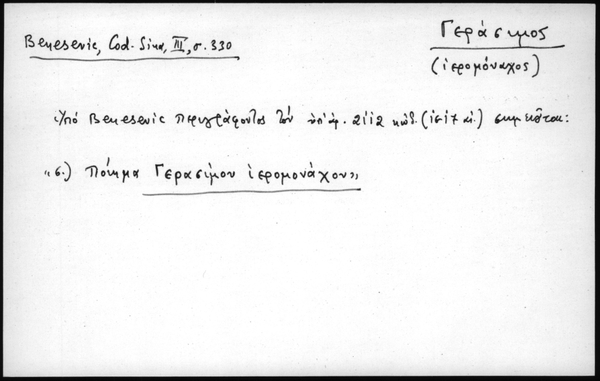 Benesevic, Cod. Sina, III, σ. 330
Γεράσιμος
(ἱερομόναχος)
Ὑπό Benesevic περιγράφοντος τόν ὑπ' ἀρ. 2112 κώδ. ( αἰ.) σημειοῦται:
«5.) Ποίημα Γερασίμου ἱερομονάχου»